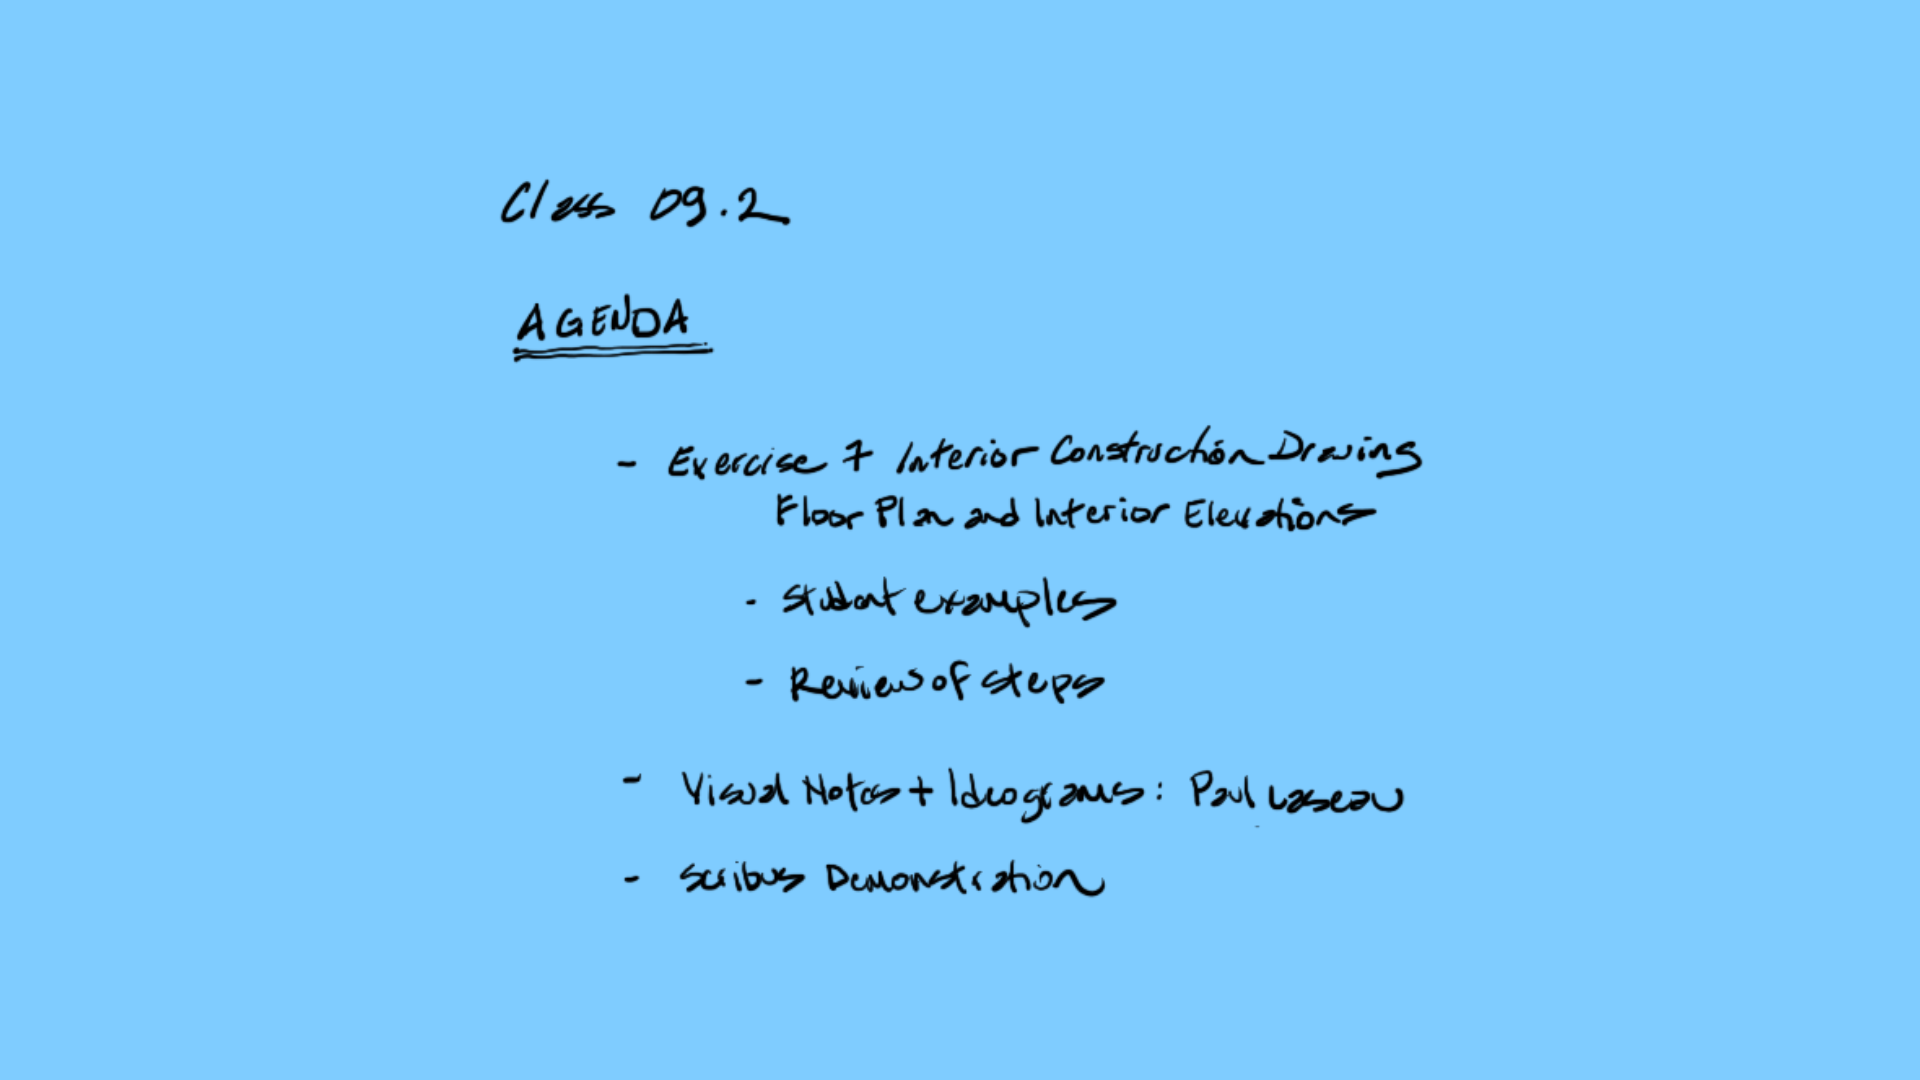 Class 09.2
AGENDA
- Exercise 7 Interior Construction Drawing
Floor Plan and Interior Elevations
- Student examples
- Review of steps
- Visual Notes + Ideograms: Paul Laseau
- Scribus Demonstration